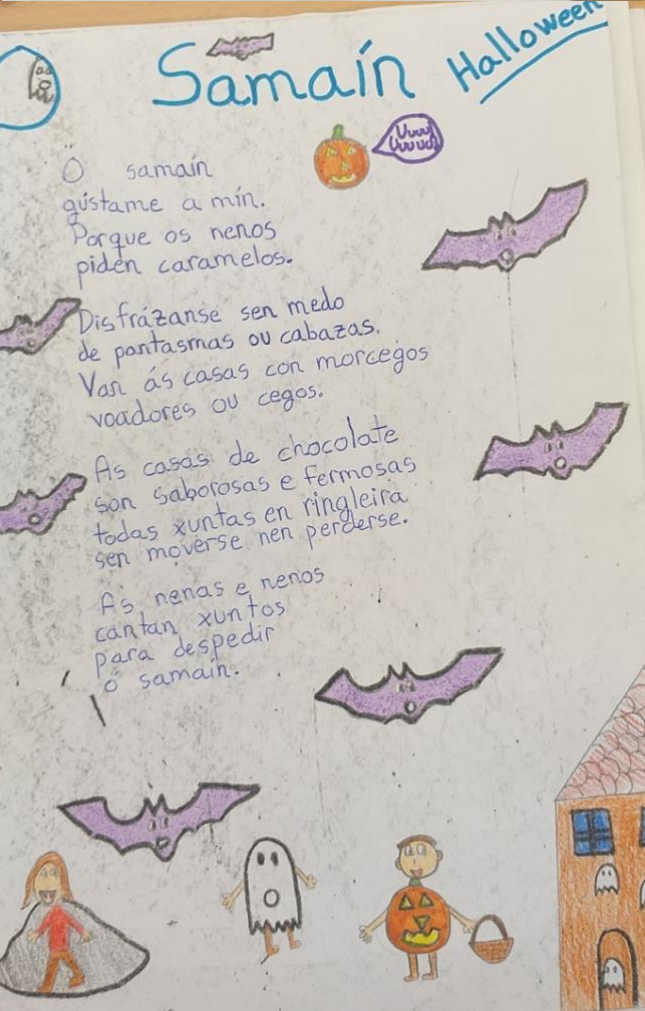 Samaín
Halloween
Uuuu
Uuuuu
O samaín
gústame a min.
Porque os nenos
piden caramelos.
Disfrázanse sen medo
de pantasmas ou cabazas.
Van ás casas con morcegos
voadores ou cegos.
As casas de chocolate
son saborosas e fermosas
todas xuntas en ringleira
sen moverse nen perderse.
As nenas e nenos
cantan xuntos
para despedir
ó samaín.